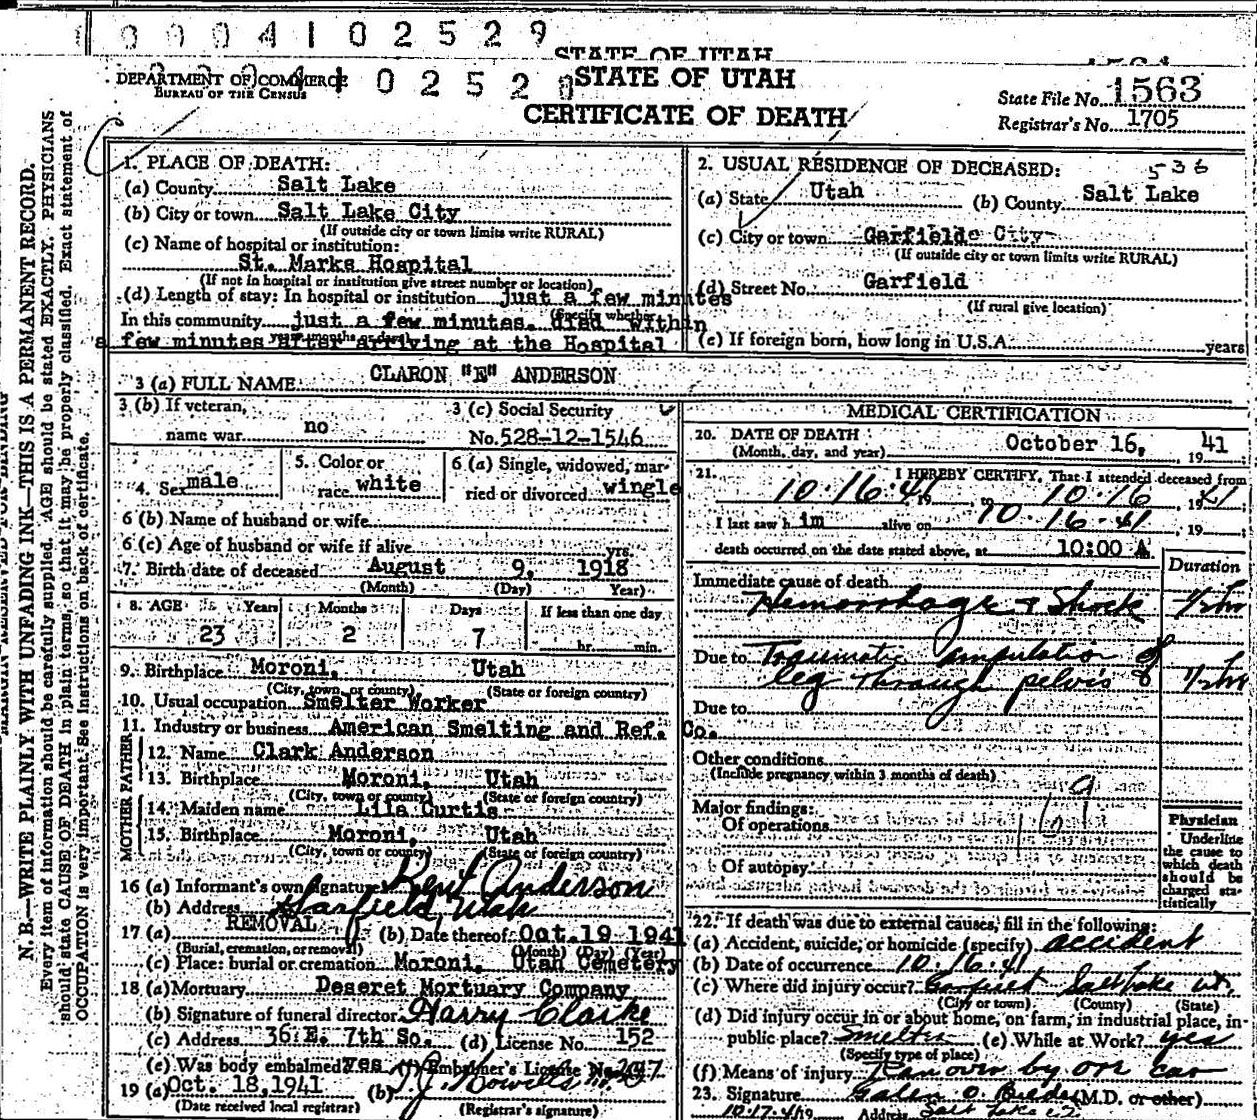 00041 02529
STATE OF UTAH
DEPARTMENT OF COMMERCE
BUREAU OF THE CENSUS
STATE OF UTAH
CERTIFICATE OF DEATH
State File No. 1563
Registrar's No. 1705
N. B.—WRITE PLAINLY WITH UNFADING INK—THIS IS A PERMANENT RECORD.
Every item of information should be carefully supplied. AGE should be stated EXACTLY. PHYSICIANS
should state CAUSE OF DEATH in plain terms, so that it may be properly classified. Exact statement of
OCCUPATION is very important. See instructions on back of certificate.
1. PLACE OF DEATH:
(a) County Salt Lake
(b) City or town Salt Lake City
(If outside city or town limits write RURAL)
(c) Name of hospital or institution:
St. Marks Hospital
(If not in hospital or institution give street number or location)
(d) Length of stay: In hospital or institution just a few minutes
(Specify whether
In this community just a few minutes. died within
a few minutes after arriving at the Hospital
2. USUAL RESIDENCE OF DECEASED: 536
(a) State Utah (b) County Salt Lake
(c) City or town Garfield City
(If outside city or town limits write RURAL)
(d) Street No. Garfield
(If rural give location)
(e) If foreign born, how long in U.S.A. years
3 (a) FULL NAME CLARON "E" ANDERSON
3 (b) If veteran, name war no
3 (c) Social Security No. 528-12-1546
4. Sex male
5. Color or race white
6 (a) Single, widowed, married or divorced wingle
6 (b) Name of husband or wife
6 (c) Age of husband or wife if alive yrs.
7. Birth date of deceased August 9, 1918
(Month) (Day) Year)
8. AGE Years Months Days If less than one day
23 2 7 hr. min.
9. Birthplace Moroni, Utah
(City, town, or county) (State or foreign country)
10. Usual occupation Smelter Worker
11. Industry or business American Smelting and Ref. Co.
FATHER
12. Name Clark Anderson
13. Birthplace Moroni, Utah
(City, town or county) (State or foreign country)
MOTHER
14. Maiden name Lila Curtis
15. Birthplace Moroni, Utah
(City, town or county) (State or foreign country)
16 (a) Informant's own signature Kent Anderson
(b) Address Garfield, Utah
17 (a) REMOVAL (b) Date thereof Oct. 19 1941
(Burial, cremation, or removal) (Month) (Day) (Year)
(c) Place: burial or cremation Moroni, Utah Cemetery
18 (a) Mortuary Deseret Mortuary Company
(b) Signature of funeral director Harry Clarke
(c) Address 36 E. 7th So. (d) License No. 152
(e) Was body embalmed? Yes (f) Embalmer's License No.
19 (a) Oct. 18, 1941 (b)
(Date received local registrar) (Registrar's signature)
MEDICAL CERTIFICATION
20. DATE OF DEATH October 16, 19 41
(Month, day, and year)
21. I HEREBY CERTIFY, That I attended deceased from
10-16-41 19 to 10-16, 19 41
I last saw h im alive on 10-16-41, 19
death occurred on the date stated above, at 10:00 A.
Duration
Immediate cause of death
Hemorrhage & Shock 1/2 hr
Due to Traumatic amputation of
leg through pelvis 1/2 hr
Due to
Other conditions
(Include pregnancy within 3 months of death)
Major findings:
Of operations
Of autopsy
169
Physician
Underline
the cause to
which death
should be
charged sta-
tistically
22. If death was due to external causes, fill in the following:
(a) Accident, suicide, or homicide (specify) accident
(b) Date of occurrence 10-16-41
(c) Where did injury occur? Garfield Salt Lake Ut.
(City or town) (County) (State)
(d) Did injury occur in or about home, on farm, in industrial place, in
public place? Smelter (e) While at Work? yes
(Specify type of place)
(f) Means of injury Ran over by ore car
23. Signature Galen O. (M.D. or other)
10-17-41 19 Address Salt Lake